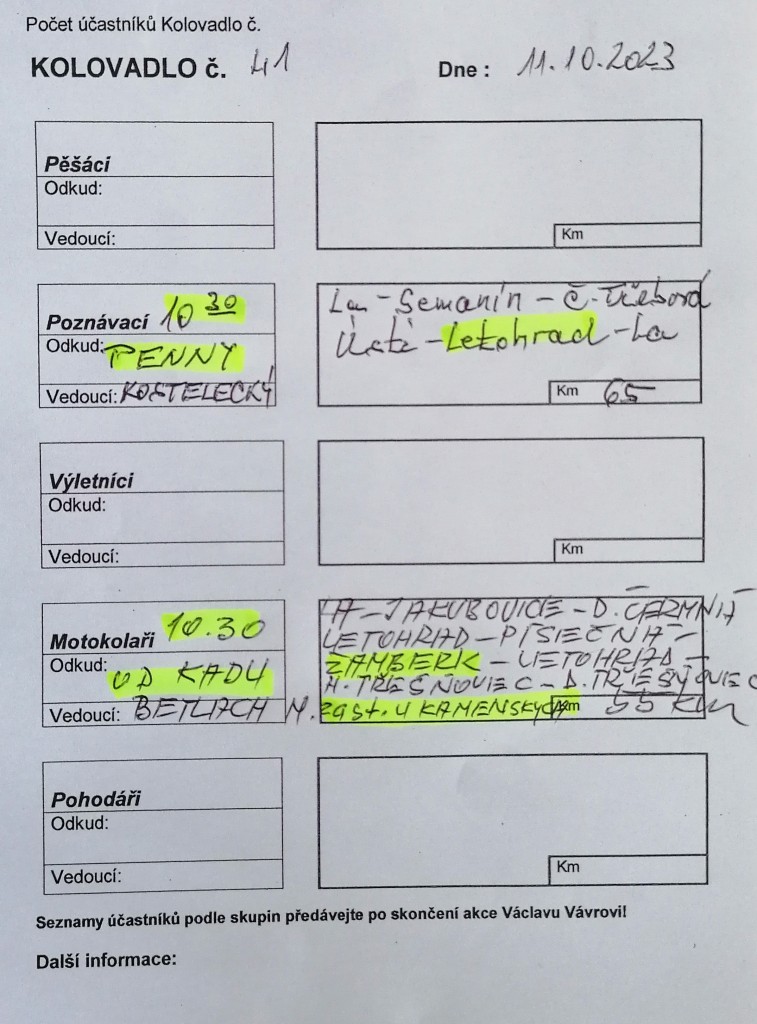 Počet účastníků Kolovadlo č.
KOLOVADLO č. 41 Dne : 11.10.2023
Pěšáci
Odkud:
Vedoucí:
Km
Poznávací 10 30
Odkud: PENNY
Vedoucí: KOSTELECKÝ
La - Semanín - Č. Třebová
Ústí - Letohrad - La
Km 65
Výletníci
Odkud:
Vedoucí:
Km
Motokolaři 10.30
Odkud: OD KADU
Vedoucí: BETLACH M.
LA - JAKUBOVICE - D. ČERMNÁ
LETOHRAD - PÍSEČNÁ -
ŽAMBERK - LETOHRAD -
H. TŘEŠŇOVEC - D. TŘEŠŇOVEC
zast. U KAMENSKÝCH Km 55 Km
Pohodáři
Odkud:
Vedoucí:
Km
Seznamy účastníků podle skupin předávejte po skončení akce Václavu Vávrovi!
Další informace: